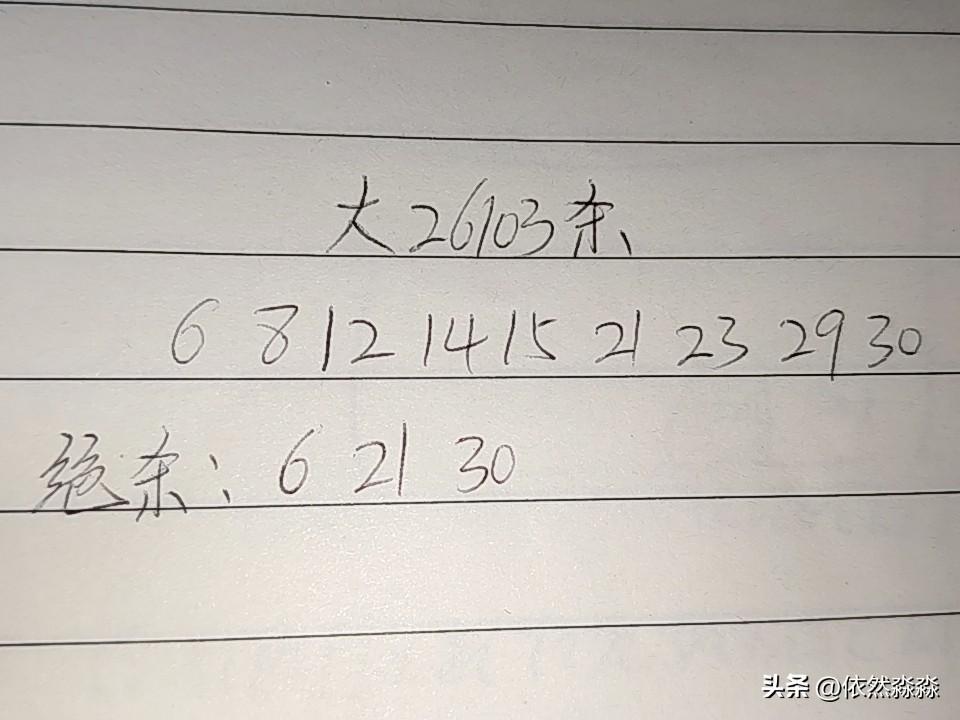 大26103杀、
6 8 12 14 15 21 23 29 30
绝杀: 6 21 30
头条 @依然淼淼